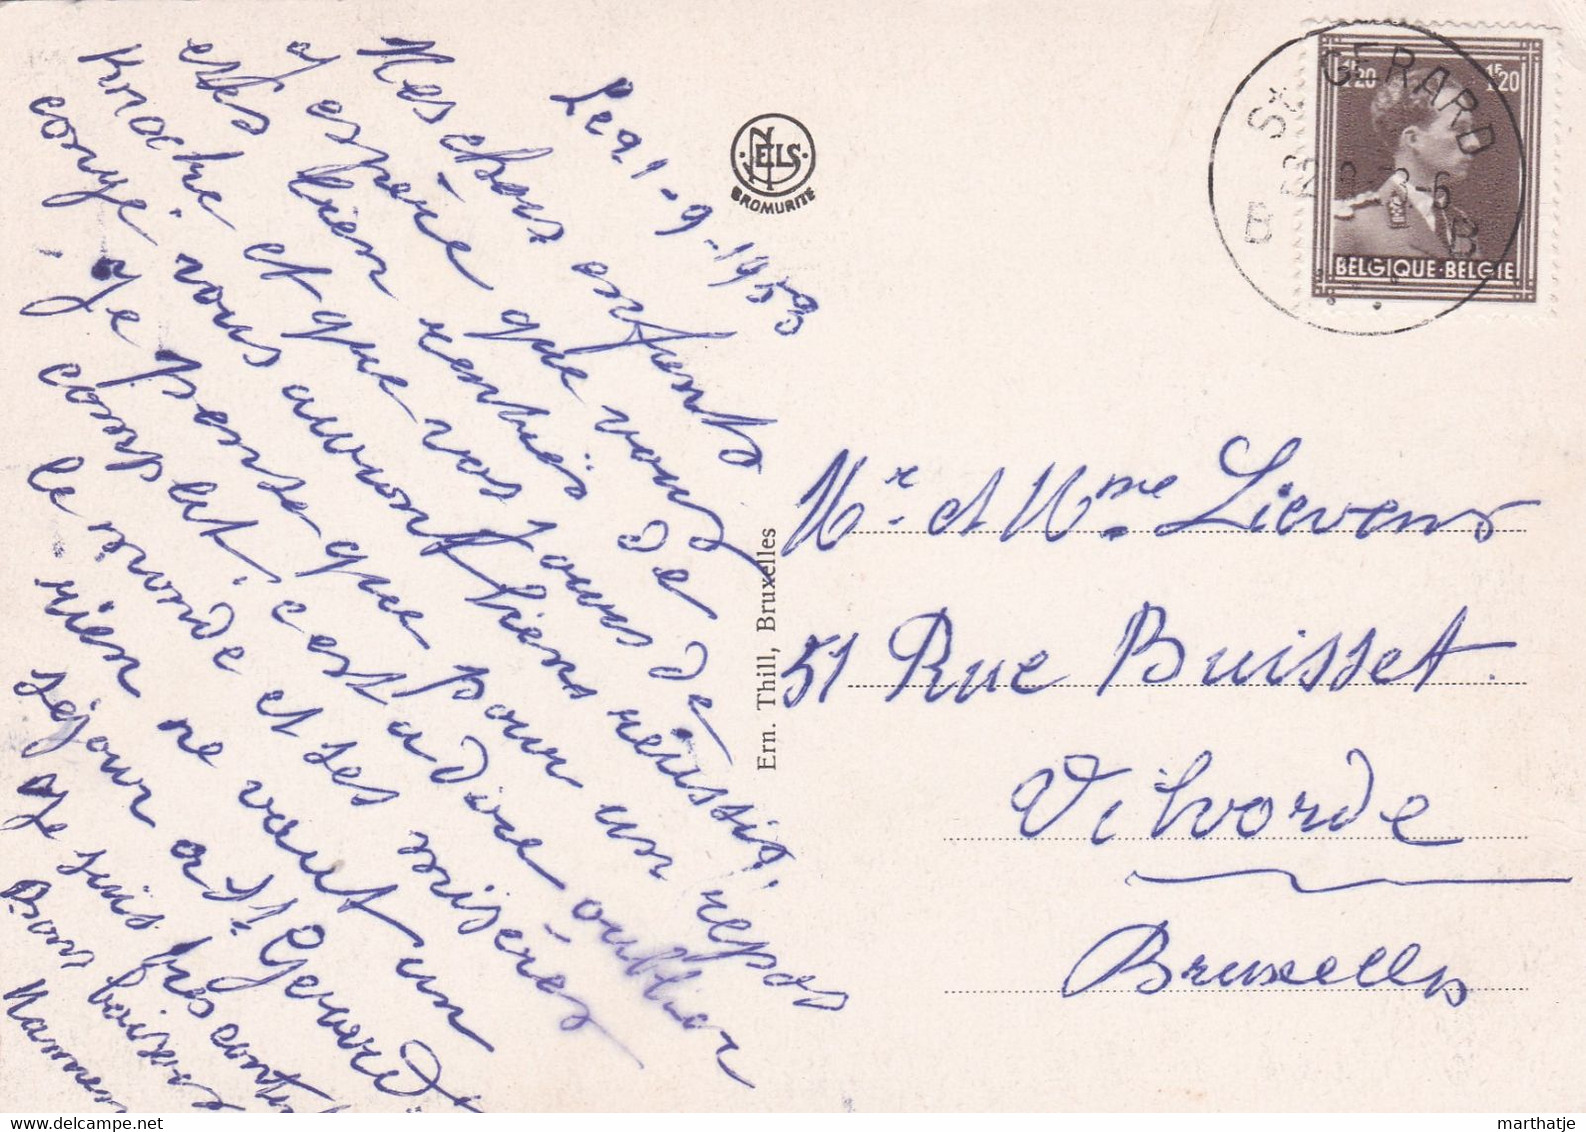 Le 21-9-1953
Mes chers enfants
J espère que vous
etes bien rentrés de
Knocke et que vos jours de
congé vous auront bien réussis,
- Je pense que pour un repos
complet, c'est a dire oublier
le monde et ses misères
rien ne vaut un
séjour a St. Gerard.
Je suis très cont
Bons baisers
Maman
NELS
BROMURITE
Ern. Thill, Bruxelles
St GERARD
B B
1F20 1F20
BELGIQUE-BELGIE
Mr. et Mme Lievens
51 Rue Buisset.
Vilvorde
Bruxelles
marthatje